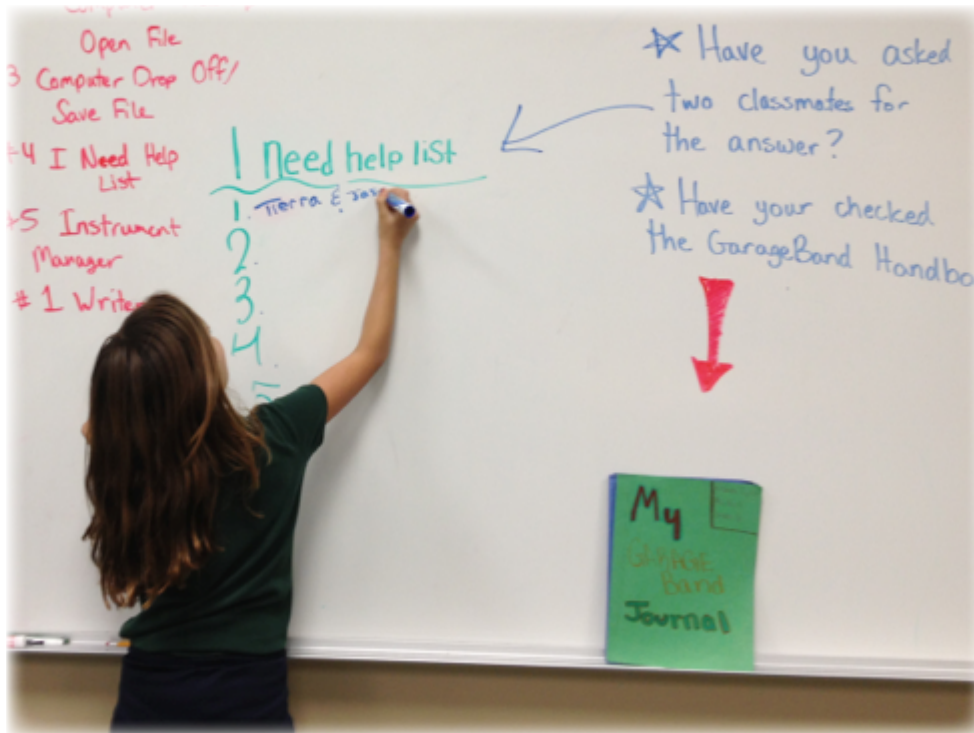 Open File
3 Computer Drop Off/
Save File
#4 I Need Help
List
#5 Instrument
Manager
# 1 Writer
I need help list
1. Tierra &
2.
3.
4
5
☆ Have you asked
two classmates for
the answer?
☆ Have your checked
the GarageBand Handbo
My
GARAGE
Band
Journal